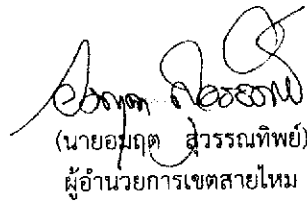 (นายอมฤต สุวรรณทิพย์)
ผู้อำนวยการเขตสายไหม